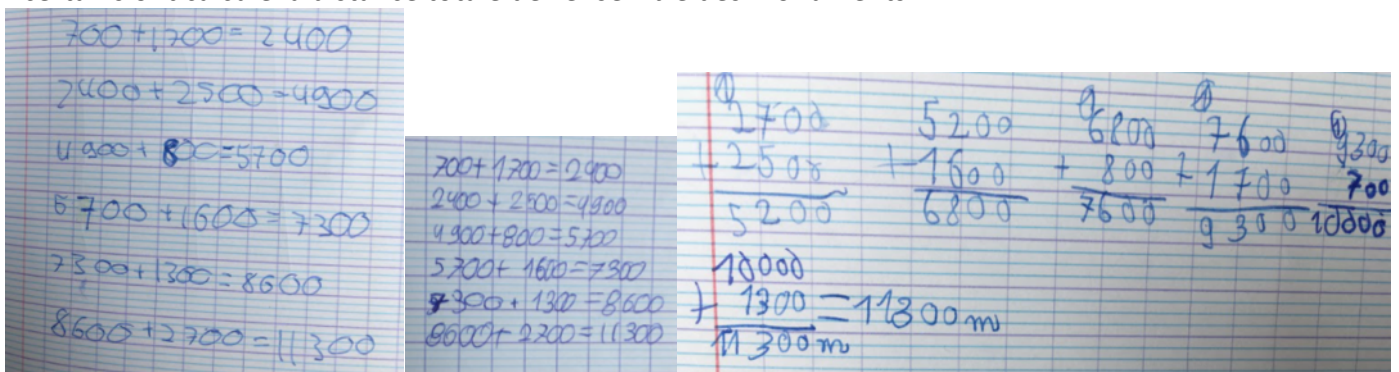 700+1700=2400
2400+2500=4900
4900+800=5700
5700+1600=7300
7300+1300=8600
8600+2700=11300
700+1700=2400
2400+2500=4900
4900+800=5700
5700+1600=7300
7300+1300=8600
8600+2700=11300
1 1 1 1
2700 5200 6800 7600 9300
+2500 +1600 + 800 +1700 700
5200 6800 7600 9300 10000
10000
+ 1300 = 11300m
11300m